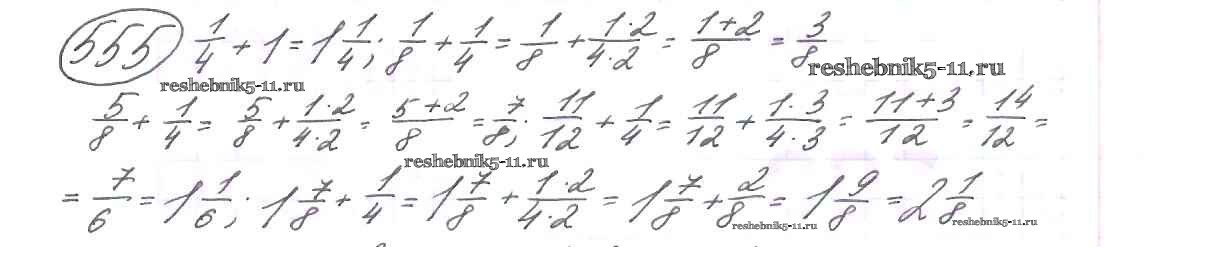 555 1/4 + 1 = 1 1/4; 1/8 + 1/4 = 1/8 + 1·2/4·2 = 1+2/8 = 3/8
reshebnik5-11.ru reshebnik5-11.ru
5/8 + 1/4 = 5/8 + 1·2/4·2 = 5+2/8 = 7/8; 11/12 + 1/4 = 11/12 + 1·3/4·3 = 11+3/12 = 14/12 =
reshebnik5-11.ru
= 7/6 = 1 1/6; 1 7/8 + 1/4 = 1 7/8 + 1·2/4·2 = 1 7/8 + 2/8 = 1 9/8 = 2 1/8
reshebnik5-11.ru reshebnik5-11.ru